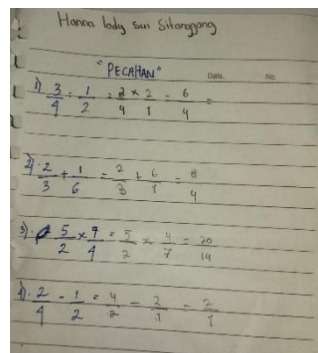 Hanna lady sari Sitanggang
"PECAHAN"
Date.
No.
1) 3/4 : 1/2 = 3/4 × 2/1 = 6/4 =
2). 2/3 + 1/6 = 2/3 + 6/1 = 8/4
3). 5/2 × 7/4 = 5/2 × 4/7 = 20/14
4). 2/4 - 1/2 = 4/2 - 2/1 = 2/1